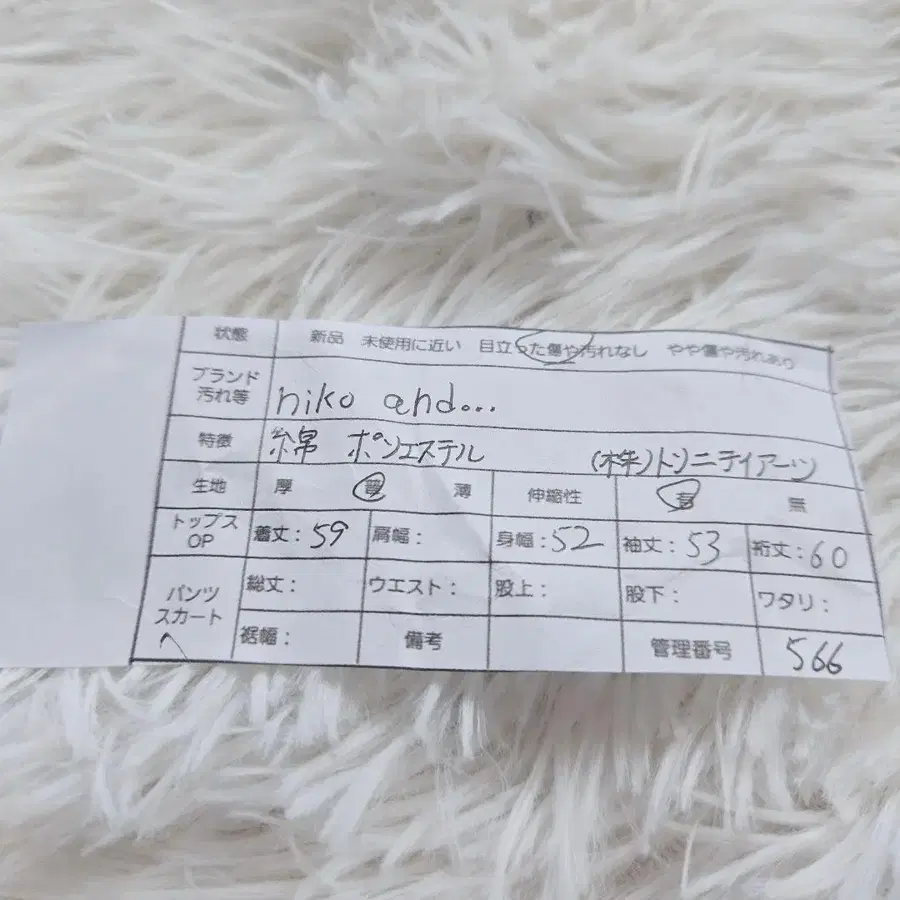 状態 新品 未使用に近い 目立った傷や汚れなし やや傷や汚れあり
ブランド
汚れ等 niko and...
特徴 綿 ポリエステル (株)トリニティアーツ
生地 厚 普 薄 伸縮性 有 無
トップス
OP 着丈：59 肩幅： 身幅：52 袖丈：53 裄丈：60
パンツ
スカート 総丈： ウエスト： 股上： 股下： ワタリ：
裾幅： 備考 管理番号 566